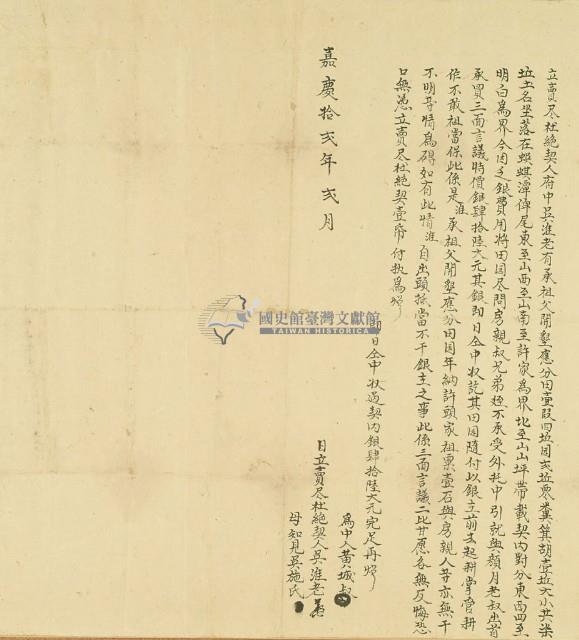 立賣尽杜絕契人府中吳淮老有承祖父開墾應分田壹段四坵园弍坵零糞箕胡壹坵大小共柒
坵土名坐落在蜈蜞潭倖尾東至山西至山南至許家為界北至山山坪帶載契內對分東西四至
明白為界今因乏銀費用將田园尽問房親叔兄弟姪不承受外托中引就與顏月老叔出首
承買三面言議時價銀肆拾陸大元其銀即日仝中收訖其田园隨付以銀主前去起耕掌管耕
作不敢祖當保此係是淮承祖父開墾應分田园年納許頭家租粟壹石與房親人等亦無干
不明等情為碍如有此情淮自出頭抵當不干銀主之事此係三面言議二比甘愿各無反悔恐
口無憑立賣尽杜絕契壹帋付执為炤
即日仝中收過契內銀肆拾陸大元完足再炤
嘉慶拾弍年弍月
為中人黃城叔
日立賣尽杜絕契人吳淮老
母知見吳施氏
國史館臺灣文獻館
TAIWAN HISTORICA